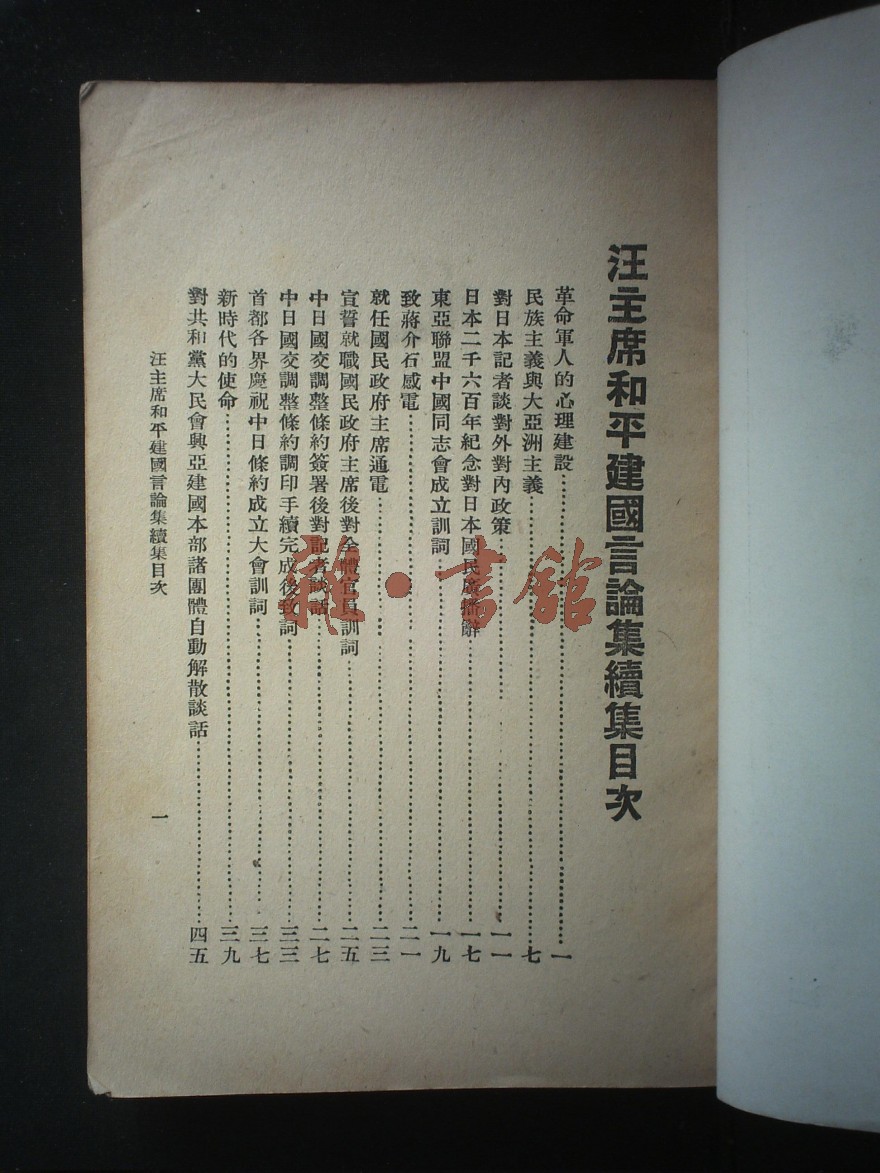 汪主席和平建國言論集續集目次
革命軍人的心理建設…………一
民族主義與大亞洲主義…………七
對日本記者談對外對內政策…………一一
日本二千六百年紀念對日本國民廣播辭…………一七
東亞聯盟中國同志會成立訓詞…………一九
致蔣介石感電…………二一
就任國民政府主席通電…………二三
宣誓就職國民政府主席後對全體官員訓詞…………二五
中日國交調整條約簽署後對記者談話…………二七
中日國交調整條約調印手續完成後致詞…………三三
首都各界慶祝中日條約成立大會訓詞…………三七
新時代的使命…………三九
對共和黨大民會興亞建國本部諸團體自動解散談話…………四五
汪主席和平建國言論集續集目次
一
雜·書館